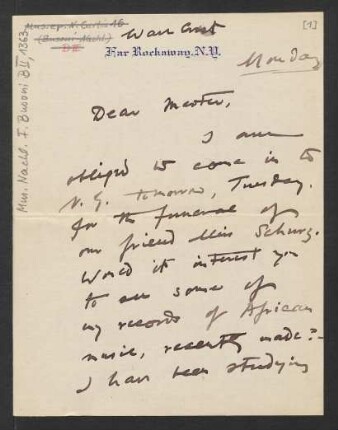 Mus. ep. N. Curtis 16
(Busoni-Nachl.)
Mus. Nachl. F. Busoni B II, 1363
[1]
Wave Crest
Far Rockaway, N.Y.
Monday
Dear Master,
I am
obliged to come in to
N. Y. tomorrow, Tuesday.
for the funeral of
our friend Miss Schurz.
Would it interest you
to see some of
my records of African
music, recently made? -
I have been studying